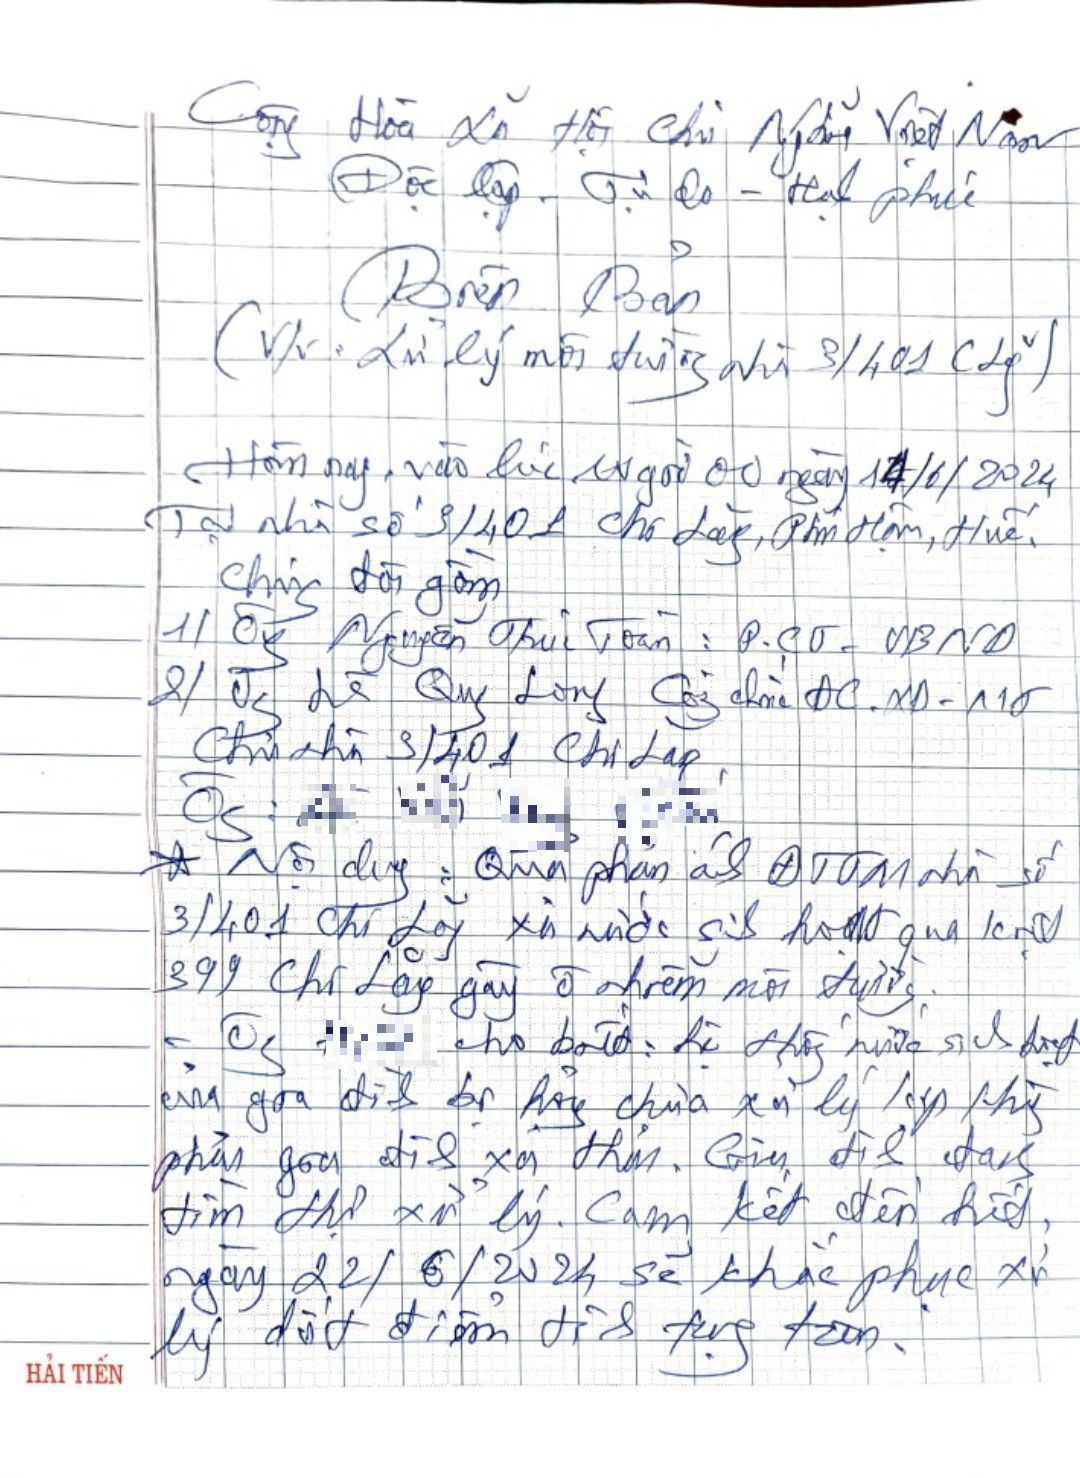 Cộng Hòa Xã Hội Chủ Nghĩa Việt Nam
Độc lập - Tự Do - Hạnh phúc
Biên Bản
(V/v: Xử lý môi trường nhà 3/401 CLg)
Hôm nay, vào lúc giờ 00 ngày 14/6/2024
Tại nhà số 3/401 Chi Lăng, Phú Hậu, Huế.
Chúng tôi gồm
1/ Ông Nguyễn Thúc Toàn: P.CT - UBND
2/ Ông Lê Quý Long Công chức ĐC.XD-MT
Chủ nhà 3/401 Chi Lăng.
Ông:
* Nội dung: Qua phản ánh nhà số
3/401 Chi Lăng xả nước sinh hoạt qua kiệt
399 Chi Lăng gây ô nhiễm môi trường.
- Ông cho biết: hệ thống nước sinh hoạt
của gia đình bị hỏng chưa xử lý kịp
phần gia đình xả thẳng. Gia đình đang
tìm thợ xử lý. Cam kết đến hết
ngày 22/6/2024 sẽ khắc phục xử
lý dứt điểm tình trạng trên.
HẢI TIẾN